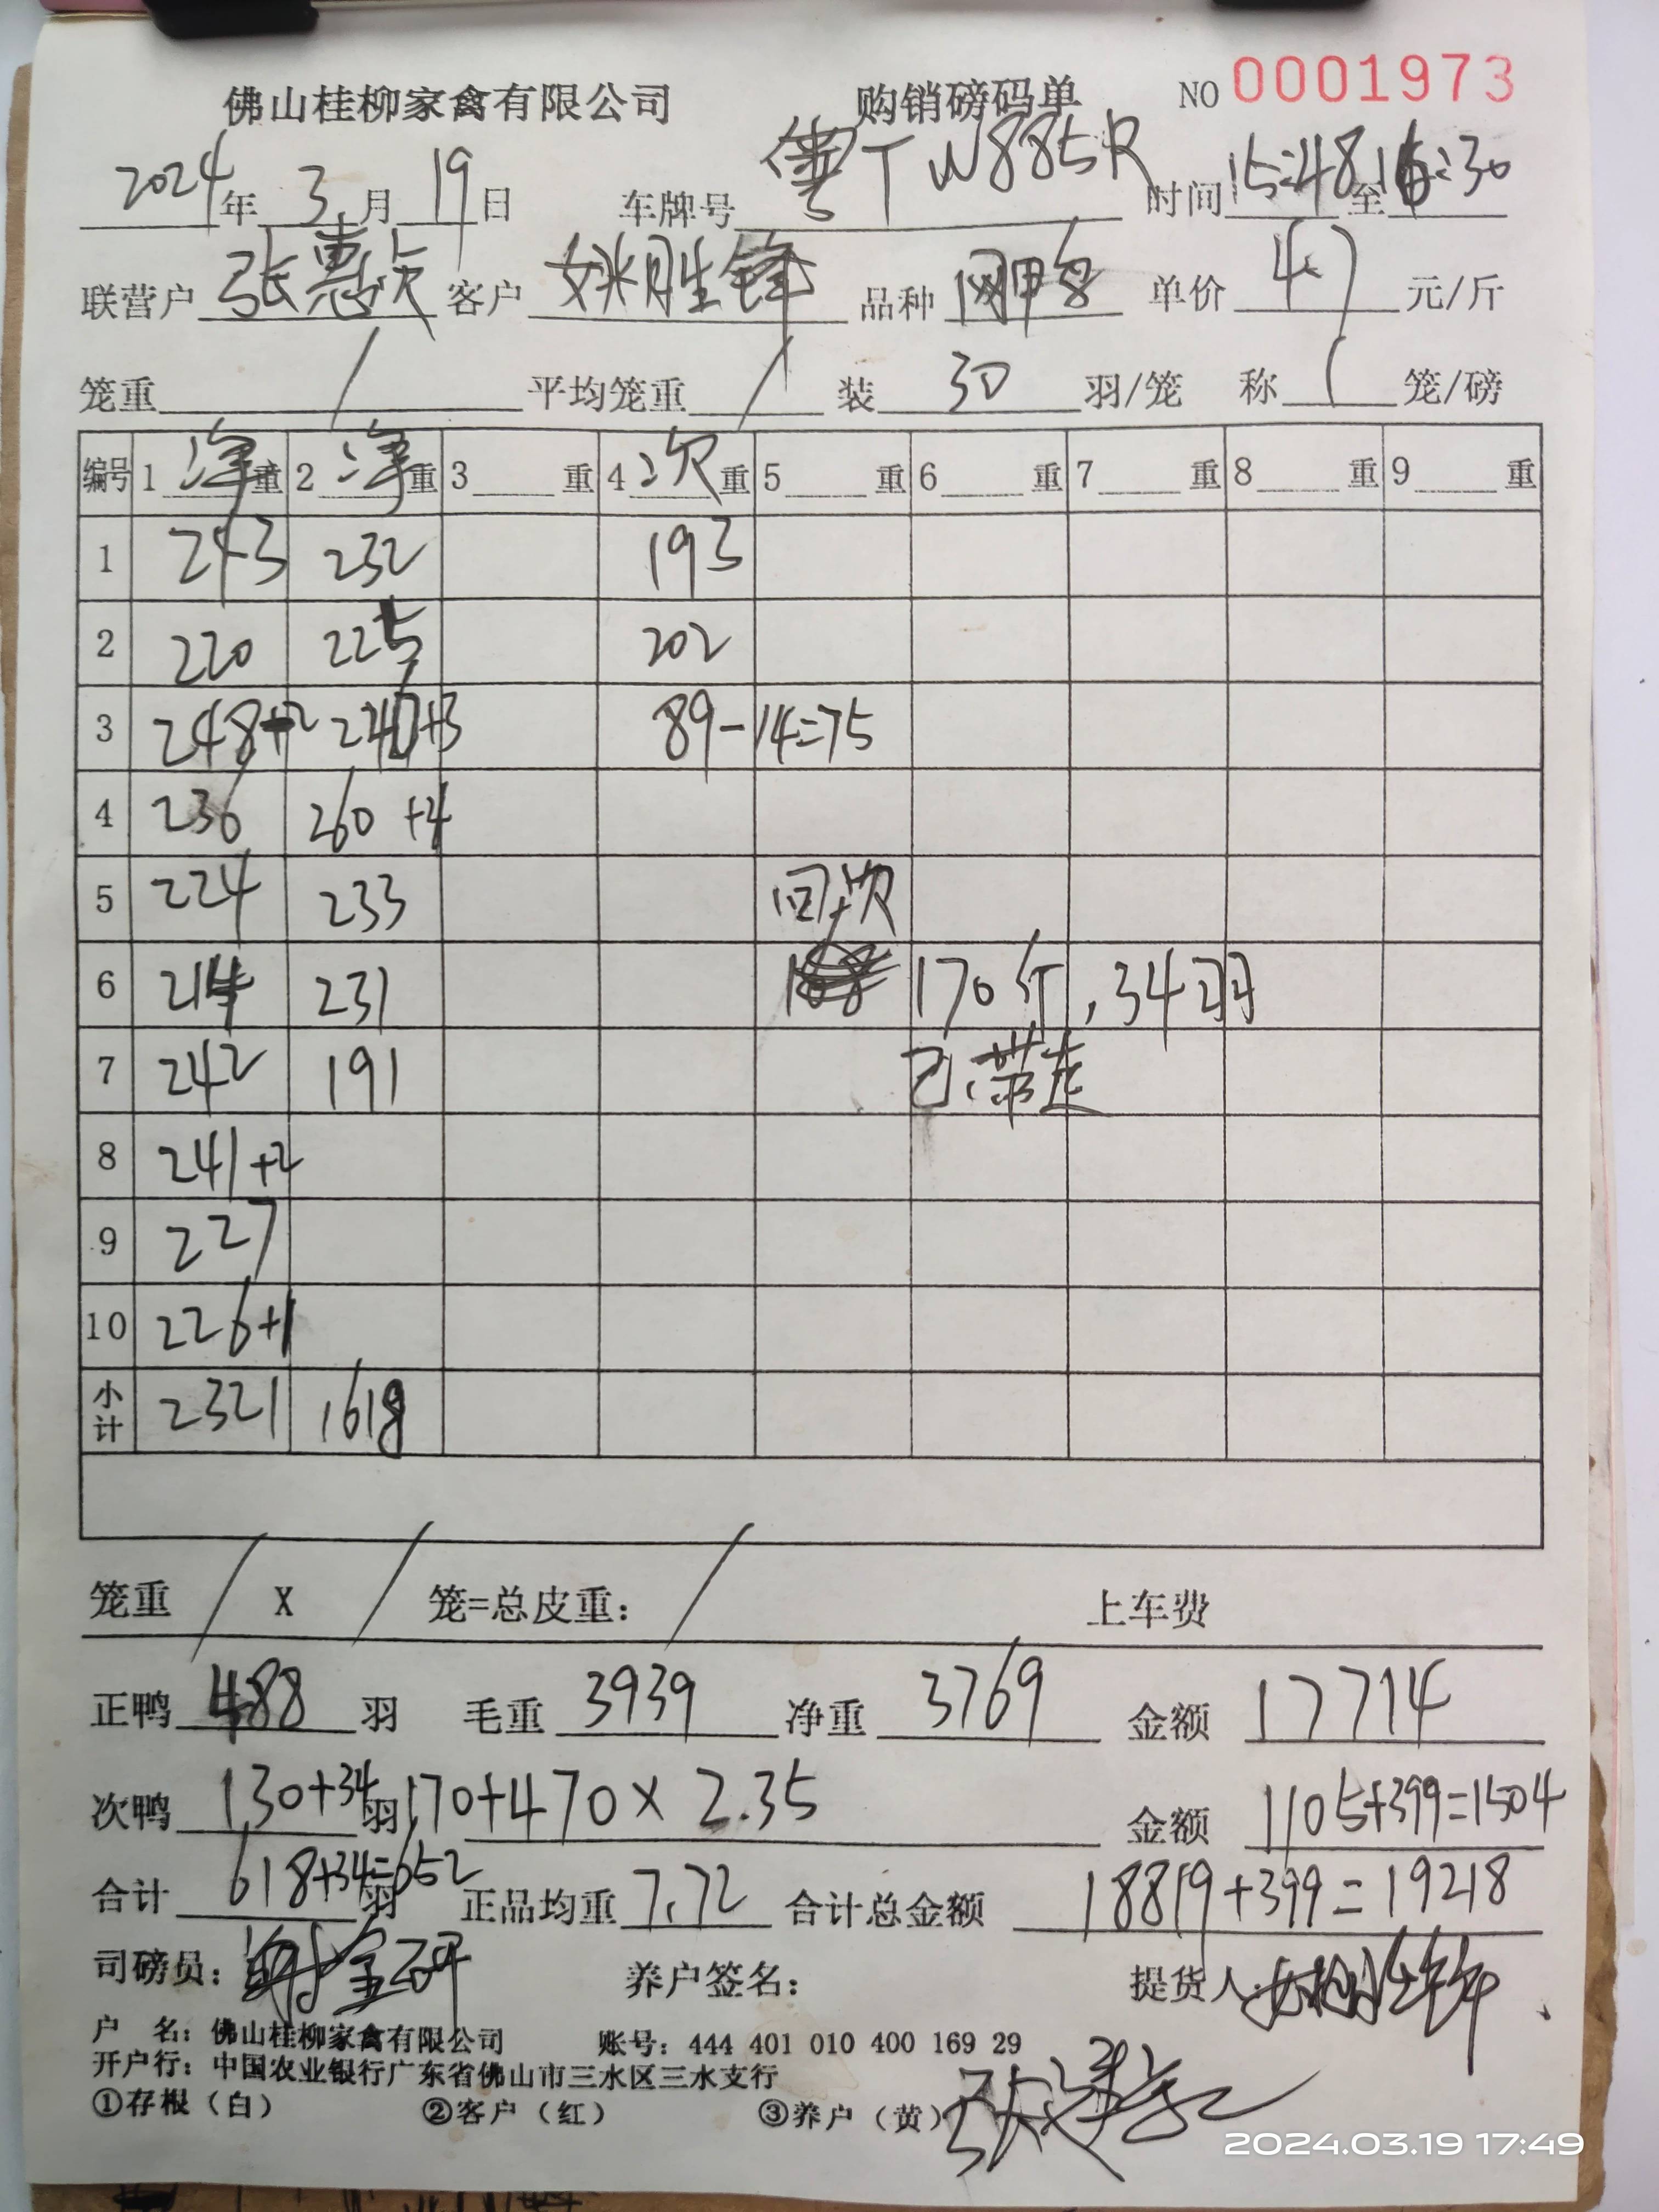 佛山桂柳家禽有限公司 购销磅码单 NO 0001973
2024年 3月 19日 车牌号 粤TW885R 时间 15:48 至 16:30
联营户 张惠 客户 姚胜锋 品种 单价 4.7 元/斤
笼重 / 平均笼重 / 装 30 羽/笼 称 1 笼/磅
编号 1 净 重 2 净 重 3 重 4 次 重 5 重 6 重 7 重 8 重 9 重
1 243 232 193
2 220 225 202
3 248+2 240+3 89-14=75
4 236 260+4
5 224 233 回次
6 214 231 170斤, 34羽
7 242 191 已带走
8 241+2
9 227
10 226+1
小计 2321 1618
笼重 / X / 笼=总皮重: / 上车费
正鸭 488 羽 毛重 3939 净重 3769 金额 17714
次鸭 130+34 羽 170+470×2.35 金额 1105+399=1504
合计 618+34=652 羽 正品均重 7.72 合计总金额 18819+399=19218
司磅员: 养户签名: 提货人:
户 名: 佛山桂柳家禽有限公司 账号: 444 401 010 400 169 29
开户行: 中国农业银行广东省佛山市三水区三水支行
①存根（白） ②客户（红） ③养户（黄）
2024.03.19 17:49